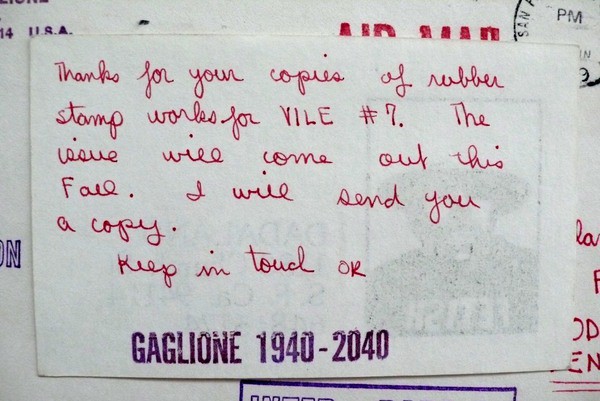 14 U.S.A.
AIR MAIL
SAN
PM
Thanks for your copies of rubber
stamp works for VILE #7. The
issue will come out this
Fall. I will send you
a copy.
Keep in touch OK
GAGLIONE 1940-2040